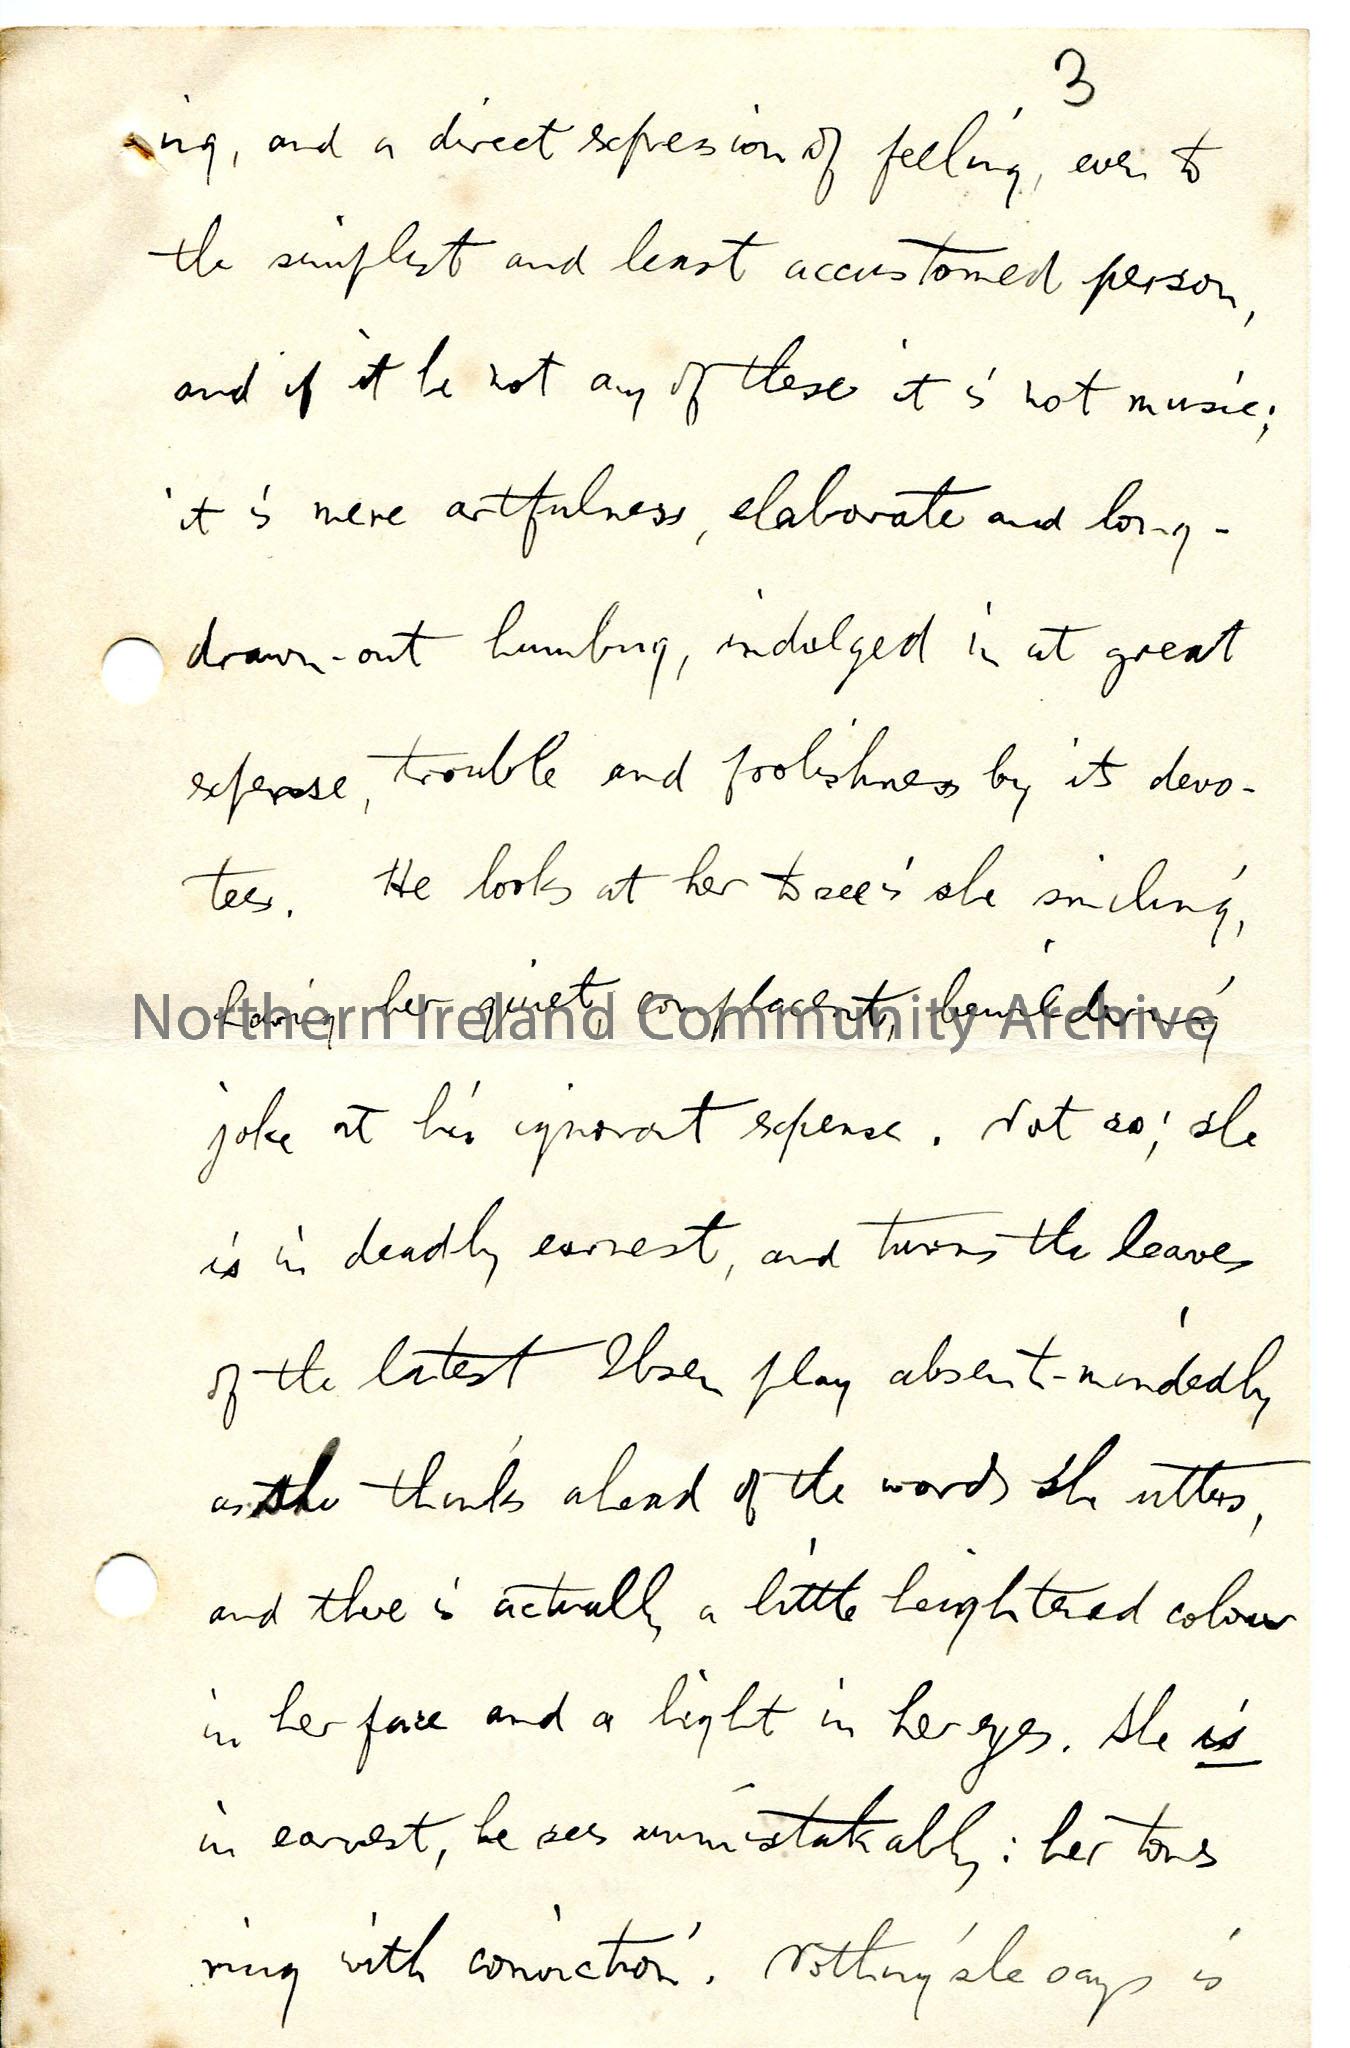 3
ing, and a direct expression of feeling, even to
the simplest and least accustomed person,
and if it be not any of these it is not music;
it is mere artfulness, elaborate and long-
drawn-out humbug, indulged in at great
expense, trouble and foolishness by its devo-
tees. He looks at her to see is she smiling,
having her quiet, complacent, bewildering
Northern Ireland Community Archive
joke at his ignorant expense. Not so; she
is in deadly earnest, and turns the leaves
of the latest Ibsen play absent-mindedly
as she thinks ahead of the words she utters,
and there is actually a little heightened colour
in her face and a light in her eyes. She is
in earnest, he sees unmistakably: her tones
ring with conviction. Nothing she says is